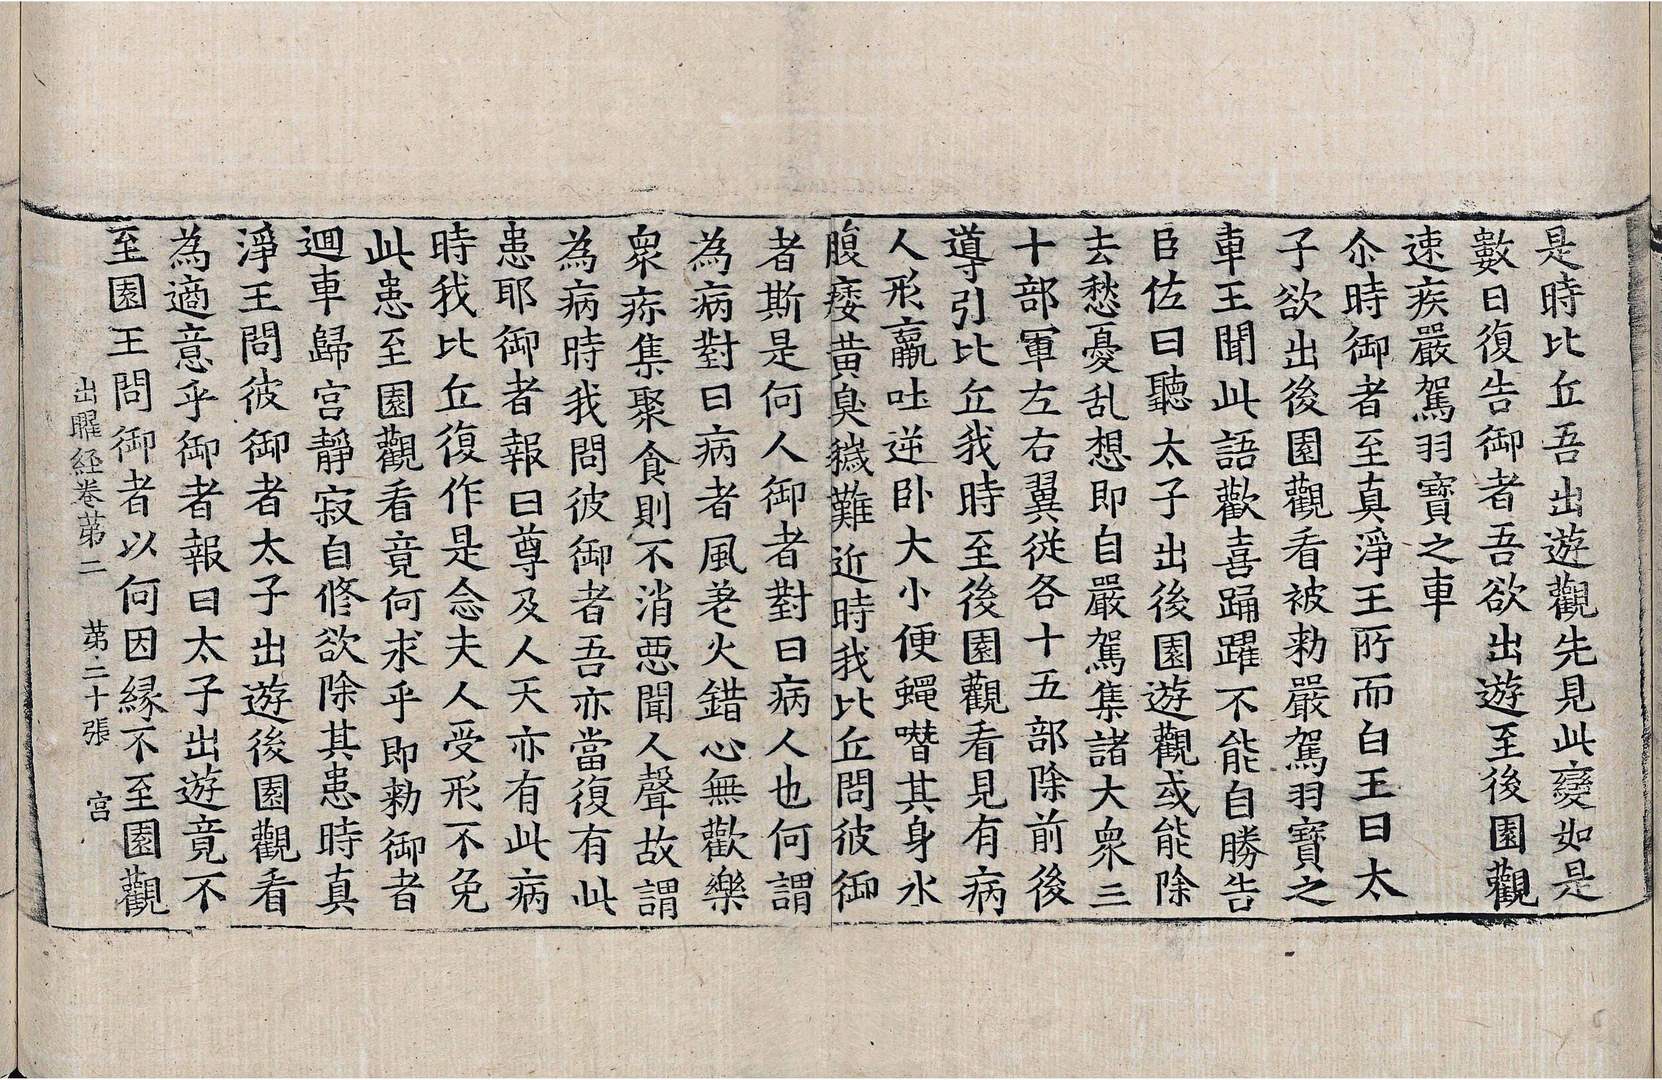 是時比丘吾出遊觀先見此變如是
數日復告御者吾欲出遊至後園觀
速疾嚴駕羽寶之車
尒時御者至真淨王所而白王曰太
子欲出後園觀看被勑嚴駕羽寶之
車王聞此語歡喜踊躍不能自勝告
臣佐曰聽太子出後園遊觀或能除
去愁憂乱想即自嚴駕集諸大衆三
十部軍左右翼從各十五部除前後
導引比丘我時至後園觀看見有病
人形羸吐逆卧大小便蠅噆其身水
腹痿黃臭穢難近時我比丘問彼御
者斯是何人御者對曰病人也何謂
為病對曰病者風差火錯心無歡樂
衆疹集聚食則不消惡聞人聲故謂
為病時我問彼御者吾亦當復有此
患耶御者報曰尊及人天亦有此病
時我比丘復作是念夫人受形不免
此患至園觀看竟何求乎即勑御者
迴車歸宮靜寂自修欲除其患時真
淨王問彼御者太子出遊後園觀看
為適意乎御者報曰太子出遊竟不
至園王問御者以何因緣不至園觀
出曜經卷第二　第二十張　宮